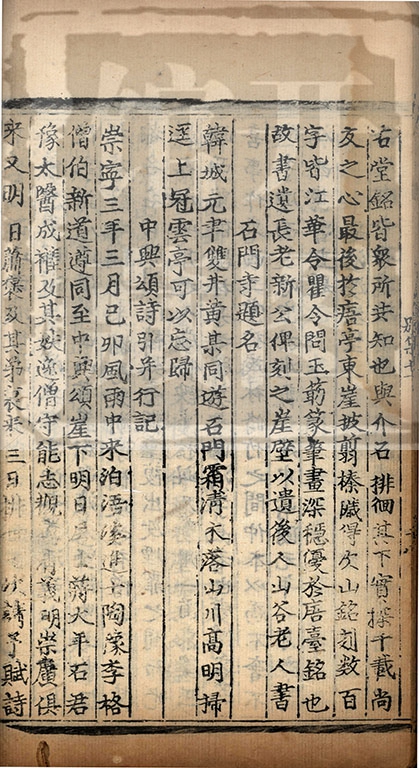 右堂銘皆衆所共知也與介石排徊其下實探千載尚
友之心最後於唐亭東崖披翦榛穢得次山銘刻數百
字皆江華令瞿令問玉筯篆筆畫深穩優於唐臺銘也
故書遺長老新公俾刻之崖壁以遺後人山谷老人書
石門寺題名
韓城元聿雙井黃某同遊石門霜清木落山川高明掃
逕上冠雲亭可以忘歸
中興頌詩引并行記
崇寧三年三月己卯風雨中來泊浯溪進士陶豫李格
僧伯新道遵同至中興頌崖下明日居士蔣大年石君
豫太醫成權及其姪逸僧守能志觀義明崇廣俱
來又明日蕭褒及其弟褎來三日徘次請予賦詩